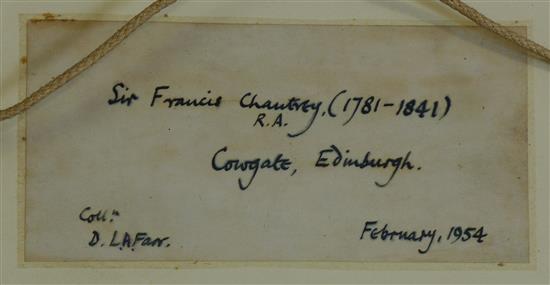 Sir Francis Chantrey, (1781-1841)
R.A.
Cowgate, Edinburgh.
Coll.n
D. L.A. Farr.
February, 1954